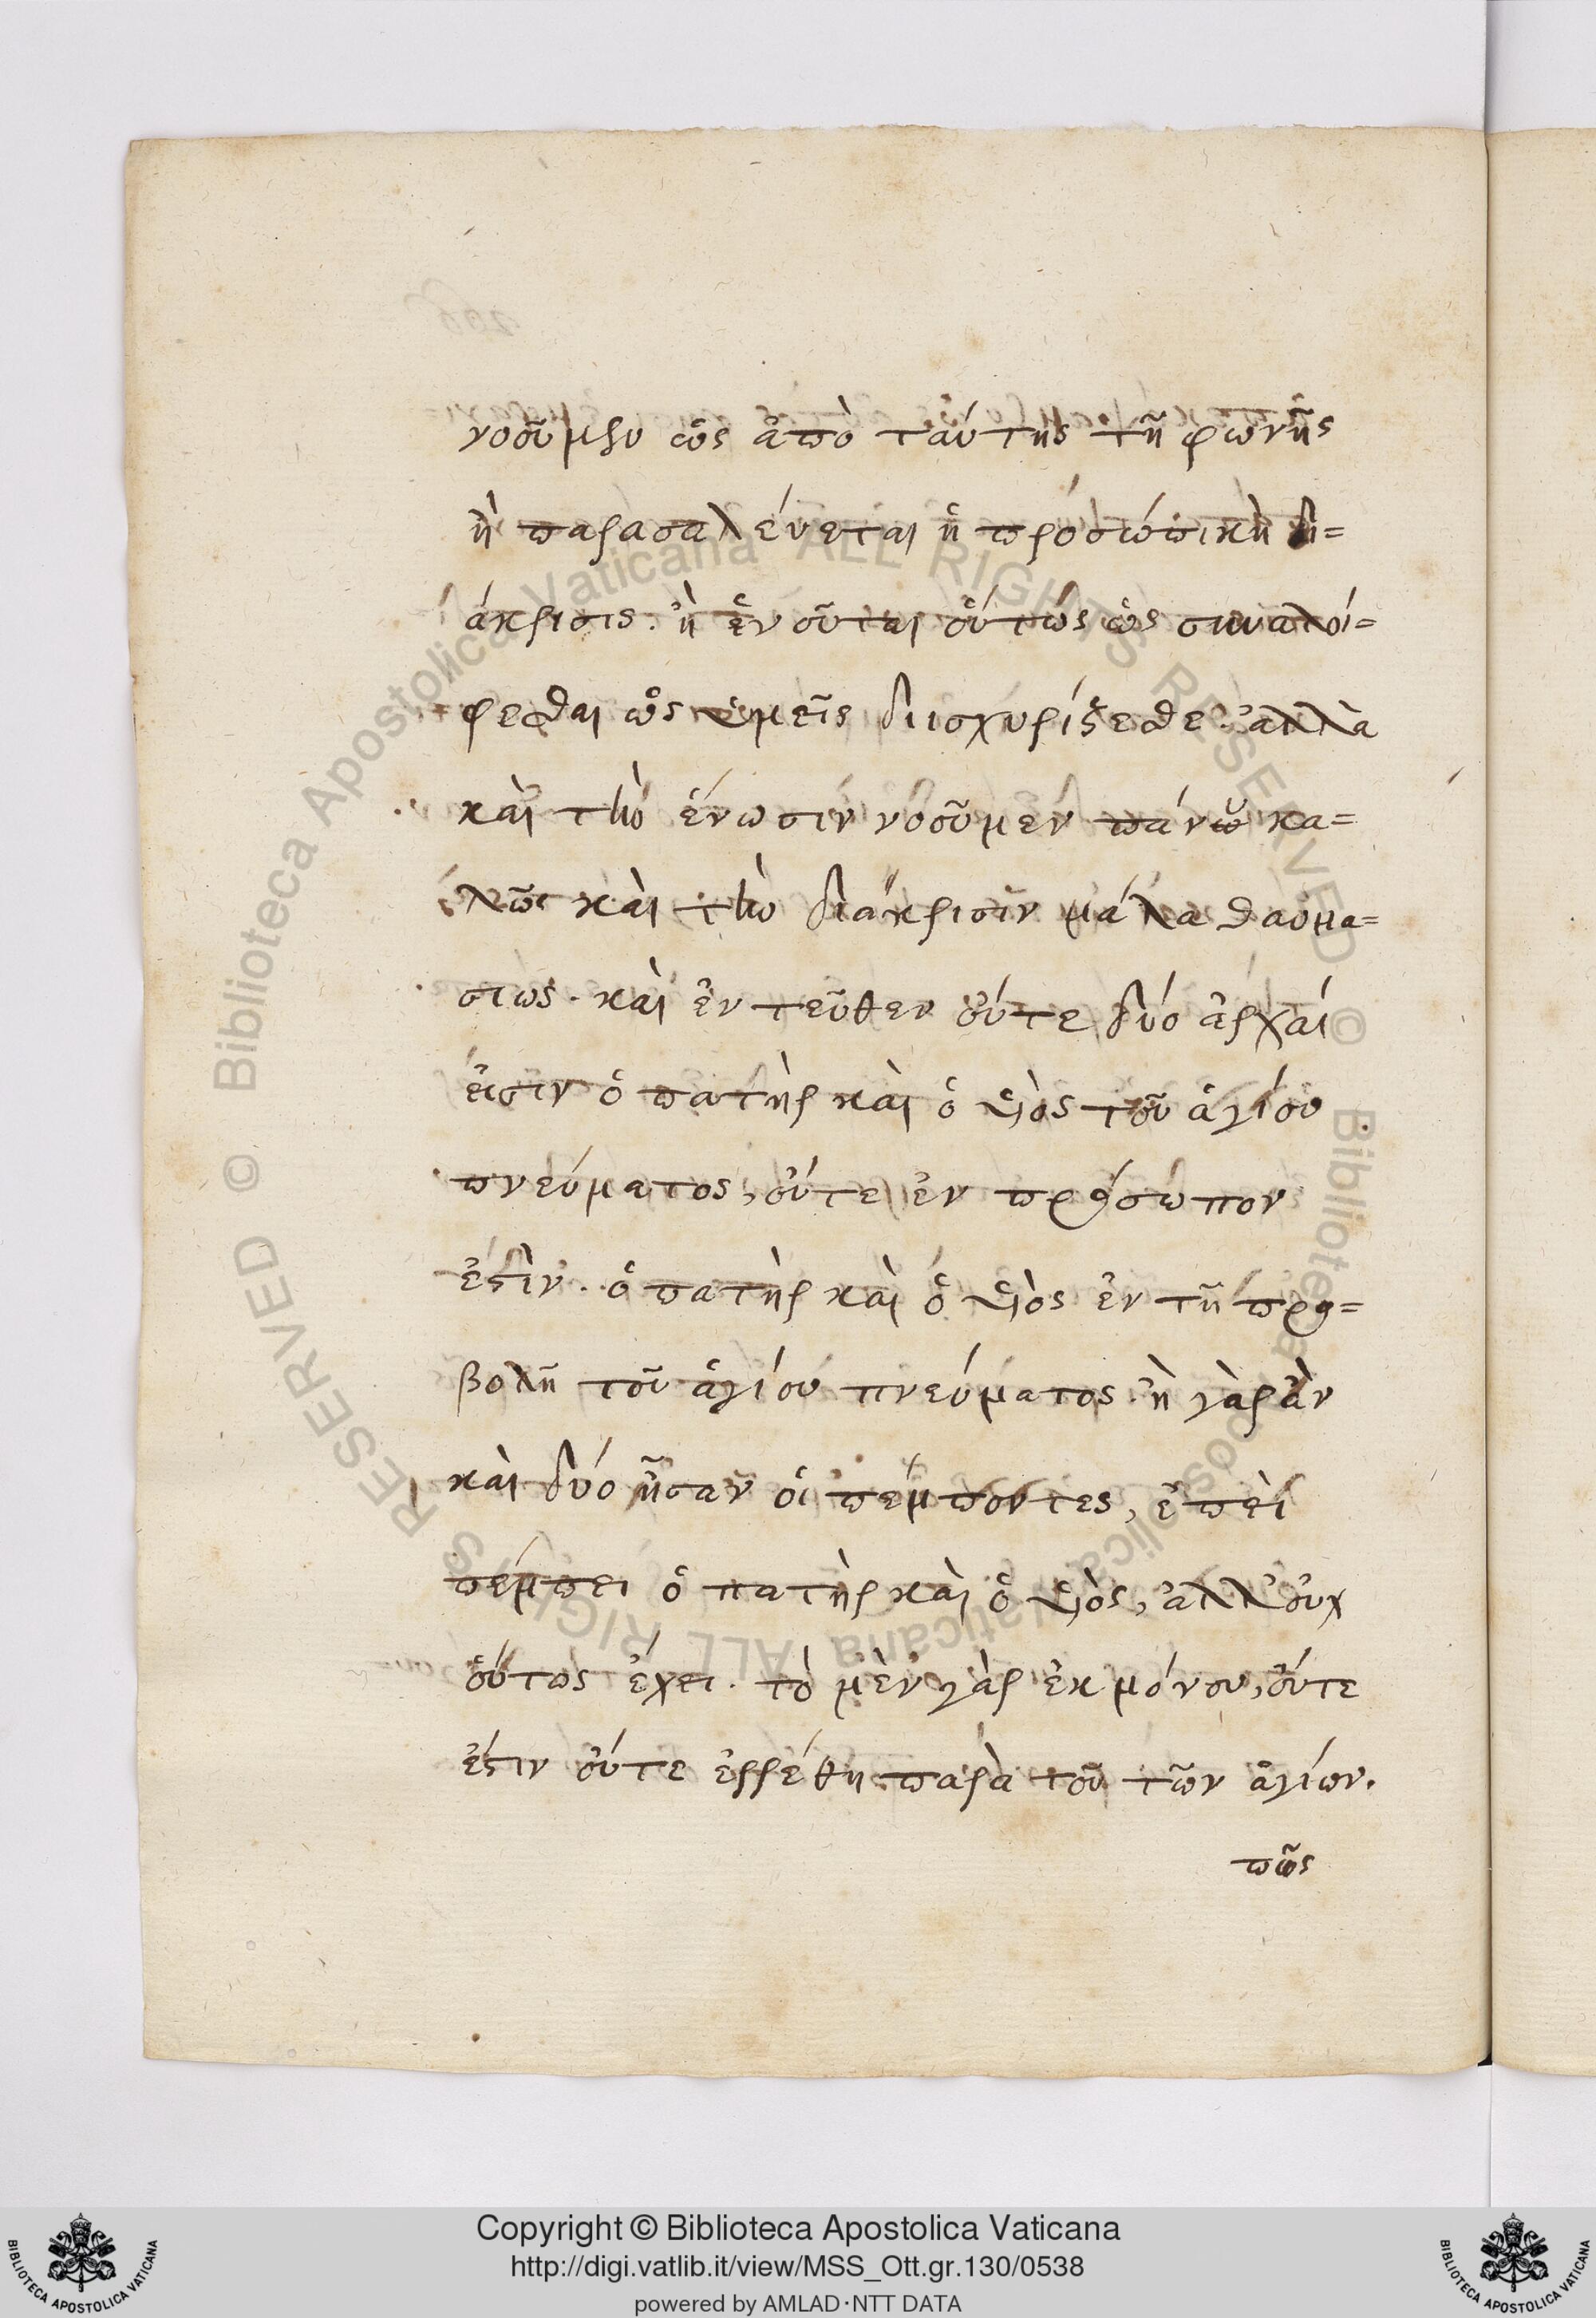 νοοῦμεν ὡς ἀπὸ ταύτης τῆ φωνῆς
ἢ παρασαλεύεται ἡ προσώπικὴ δι=
άκρισις. ἢ ἑνοῦται οὕτως ὡς συναλοί=
φεσθαι ὡς ὑμεῖς διισχυρίζεσθε. ἀλλὰ
καὶ τὴν ἕνωσιν νοοῦμεν πάνυ κα=
λῶς καὶ τὴν διάκρισιν μάλα θαυμα=
στως. καὶ ἐντεῦθεν οὔτε δύο ἀρχαί
εἰσιν ὁ πατὴρ καὶ ὁ υἱὸς τοῦ ἁγίου
πνεύματος, οὔτε ἓν πρόσωπον
ἐστὶν. ὁ πατὴρ καὶ ὁ υἱὸς ἐν τῆ προ=
βολῆ τοῦ ἁγίου πνεύματος. ἢ γὰρ ἂν
καὶ δύο ἦσαν οἱ πέμποντες, ἐπεὶ
πέμπει ὁ πατὴρ καὶ ὁ υἱὸς, ἀλλ' οὐχ
οὕτως ἔχει. τὸ μὲν γὰρ ἐκ μόνου, οὔτε
ἔστιν οὔτε ἐρρέθη παρὰ τοῦ τῶν ἁγίων.
πῶς
Copyright © Biblioteca Apostolica Vaticana
http://digi.vatlib.it/view/MSS_Ott.gr.130/0538
powered by AMLAD·NTT DATA
BIBLIOTECA APOSTOLICA VATICANA
BIBLIOTECA APOSTOLICA VATICANA
© Biblioteca Apostolica Vaticana ALL RIGHTS RESERVED
© Biblioteca Apostolica Vaticana ALL RIGHTS RESERVED